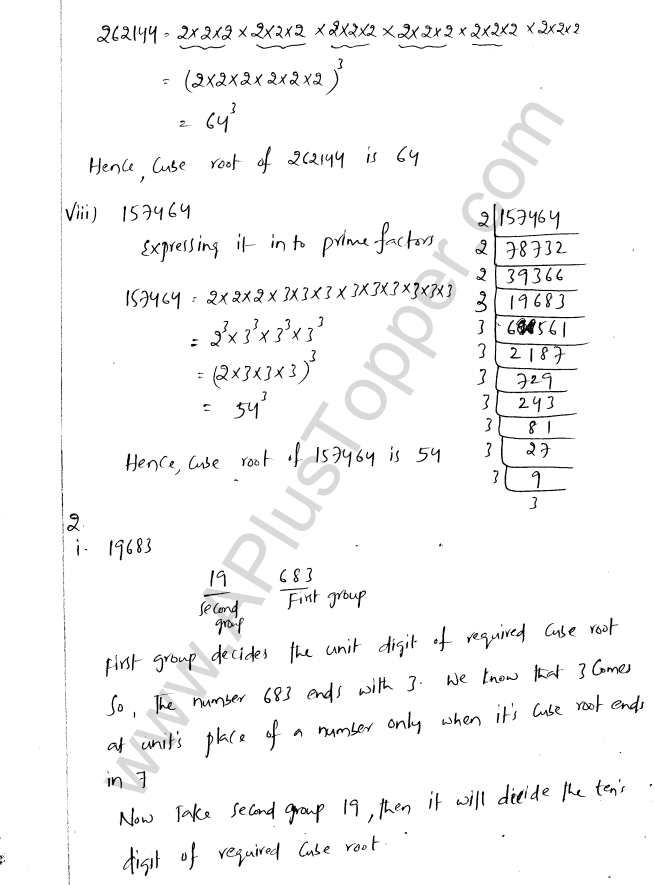 262144 = 2×2×2 × 2×2×2 × 2×2×2 × 2×2×2 × 2×2×2 × 2×2×2
= (2×2×2×2×2×2)³
= 64³
Hence, Cube root of 262144 is 64
Viii) 157464
Expressing it in to prime factors
157464 = 2×2×2×3×3×3×3×3×3×3×3×3
= 2³×3³×3³×3³
= (2×3×3×3)³
= 54³
Hence, Cube root of 157464 is 54
2 157464
2 78732
2 39366
3 19683
3 6561
3 2187
3 729
3 243
3 81
3 27
3 9
3
2
i. 19683
19 683
Second group First group
First group decides the unit digit of required Cube root
So, The number 683 ends with 3. We know that 3 Comes
at unit's place of a number only when it's Cube root ends
in 7
Now Take Second group 19, then it will decide the ten's
digit of required Cube root.
www.APlusTopper.com